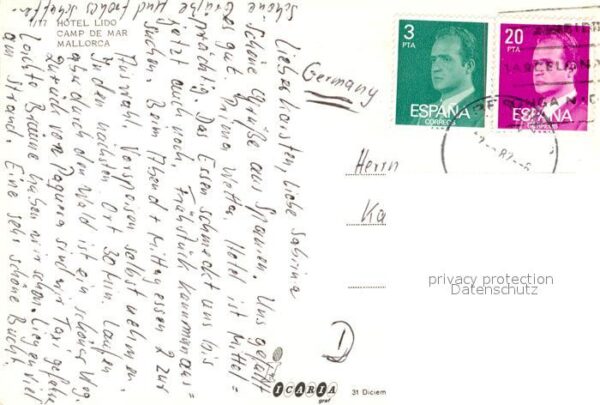 1/77 HOTEL LIDO
CAMP DE MAR
MALLORCA
Liebe Karsten, liebe Sabrina
Schöne Grüße aus Spanien. Uns gefällt
es gut. Wetter, Hotel ist Mittel =
prächtig. Das Essen schmeckt uns bis
jetzt auch noch. Frühstück kann man aus =
suchen. Beim Abend + Mittagessen 2 zur
Auswahl. Vorspeisen selbst nehmen.
In den nächsten Ort 30 Min. Laufen
aber durch den Wald ist ein schöner Weg.
Zurück von Paguera sind wir Taxi gefahren
Leichte Bräune haben wir schon. Liegen viel
am Strand. Eine sehr schöne Bucht.
Schöne Grüße und frohes Schaffen
Germany
Herrn
Ka
D
3
PTA
ESPAÑA
CORREOS
20
PTA
ESPAÑA
CORREOS
BARCELONA
privacy protection
Datenschutz
ICARIA
graf
31 Diciem